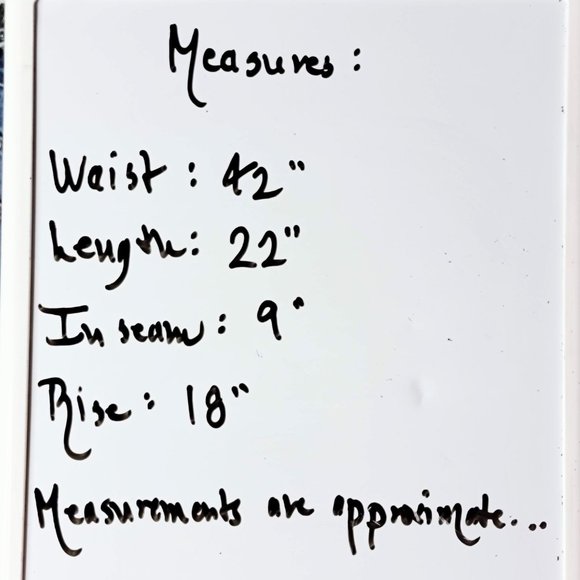 Measures :
Waist : 42"
Length : 22"
Inseam : 9"
Rise : 18"
Measurements are approximate...